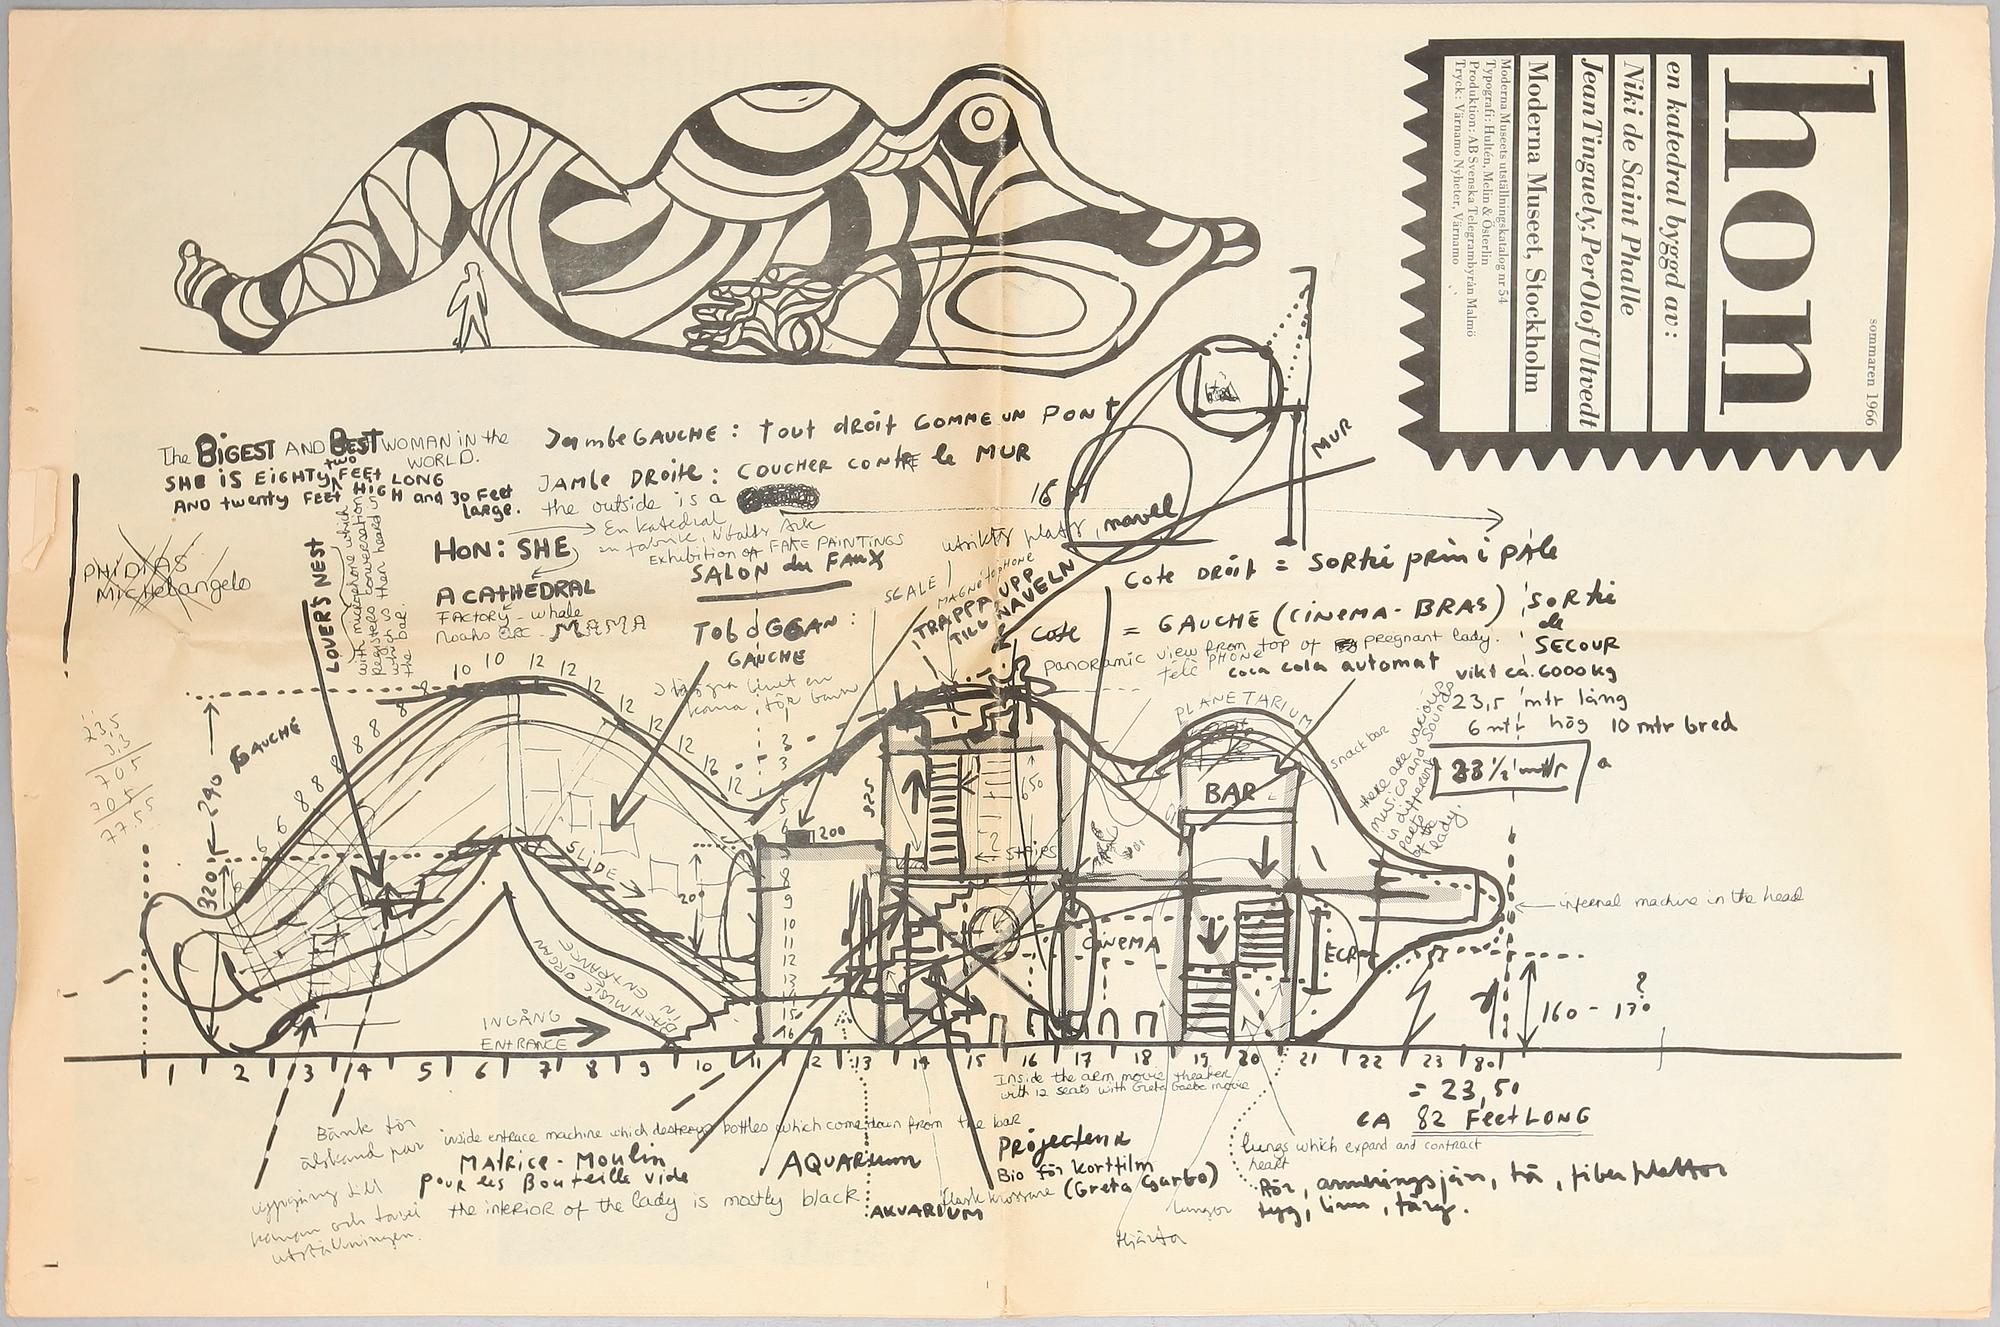 hon
sommaren 1966
en katedral byggd av:
Niki de Saint Phalle
Jean Tinguely, Per Olof Ultvedt
Moderna Museet, Stockholm
Moderna Museets utställningskatalog nr 54
Typografi: Hultén, Melin & Österlin
Produktion: AB Svenska Telegrambyrån Malmö
Tryck: Värnamo Nyheter, Värnamo
The BIGEST AND BEST WOMAN IN the
WORLD.
SHE iS EiGHTy two FEET LONG
AND twenty FEET HIGH and 30 Feet
large.
JambeGAUCHE : tout droit COMME UN PONT
JAMbe DROite : COUCHER CONTRE le MUR
the outside is a
MUR
16
navel
PHIDIAS
Michelangelo
LOVER'S NEST
with microphone which
registers conversation
which is then heard in
the bar.
HON : SHE
En katedral
en fabrik,
Exhibition of FAKE PAINTINGS
SALON du FAUX
A CATHEDRAL
FACTORY - whale
Noahs
MAMA
TOboGGAN :
GAUCHE
SCALE
MAGNETOPHONE
TRAPPA UPP
TILL NAVELN
COte DROit = SORtie principAle
COte = GAUCHE (CiNEMA-BRAS)
SORtie
de
SECOUR
panoramic view from top of pregnant lady.
téléPHONE
coca cola automat
vikt ca. 6000 kg
23,5 mtr lång
6 mtr hög 10 mtr bred
PLANETARIUM
snack bar
there are various
musics and sounds
in different
parts of
the lady.
23,5
3,3
705
705
77.55
GAUCHE
240
320
8 10 10 12 12 12
SLIDE
200
200
825
650
STAIRS
BAR
CINEMA
ECRAN
internal machine in the head
160 - 170 ?
INGÅNG
ENTRANCE
BACH MUSIC ORGAN
IN ENTRANCE
1 2 3 4 5 6 7 8 9 10 11 12 13 14 15 16 17 18 19 20 21 22 23 80
= 23,50
CA 82 FeetLONG
Inside the arm movie theater
with 12 seats with Greta Garbo movie
Bänk för
älskand par
inside entrace machine which destroys bottles which come down from the bar
MAtRice - Moulin
pouR les Bouteille vide
the interior of the lady is mostly black
AQUARium
AKVARIUM
PROjecteur
Bio för kortfilm
(Greta Garbo)
Flaskkrossare
lungs which expand and contract
heart
lungor
Hjärta
Rör, armeringsjärn, trä, fiberplattor
tyg, lim, färg.
uppgång till
utställningen.